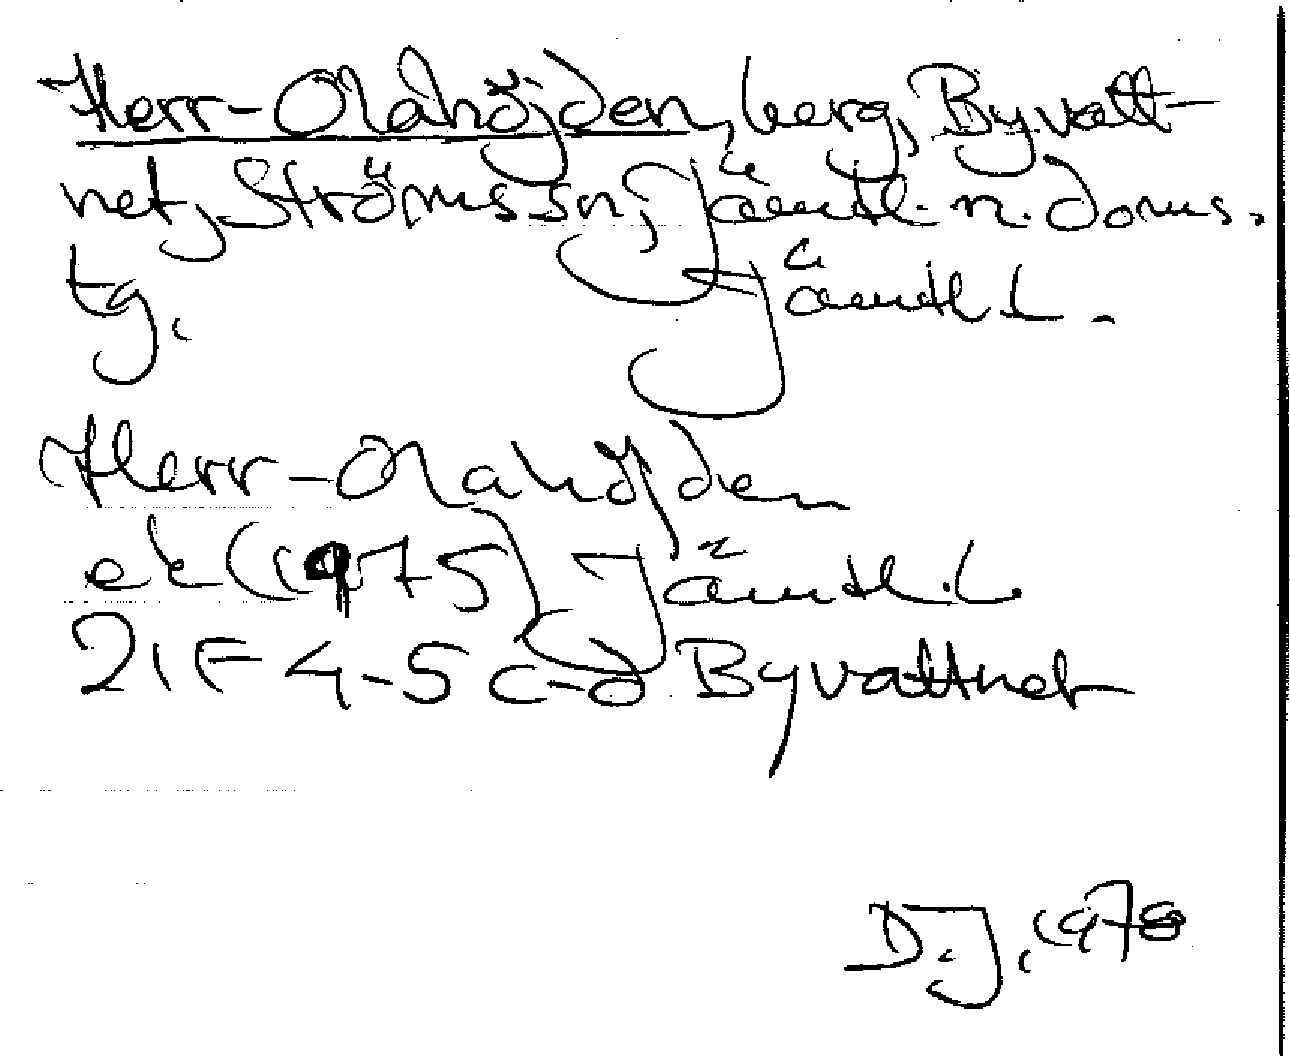 Herr-Olahöjden, berg, Byvatt-
net, Ströms sn, Jämtl. n. doms.
tg. Jämtl l.
Herr-Olahöjden
ek (1975) Jämtl. l.
21F 4-5 c-d Byvattnet
D. J. 1978